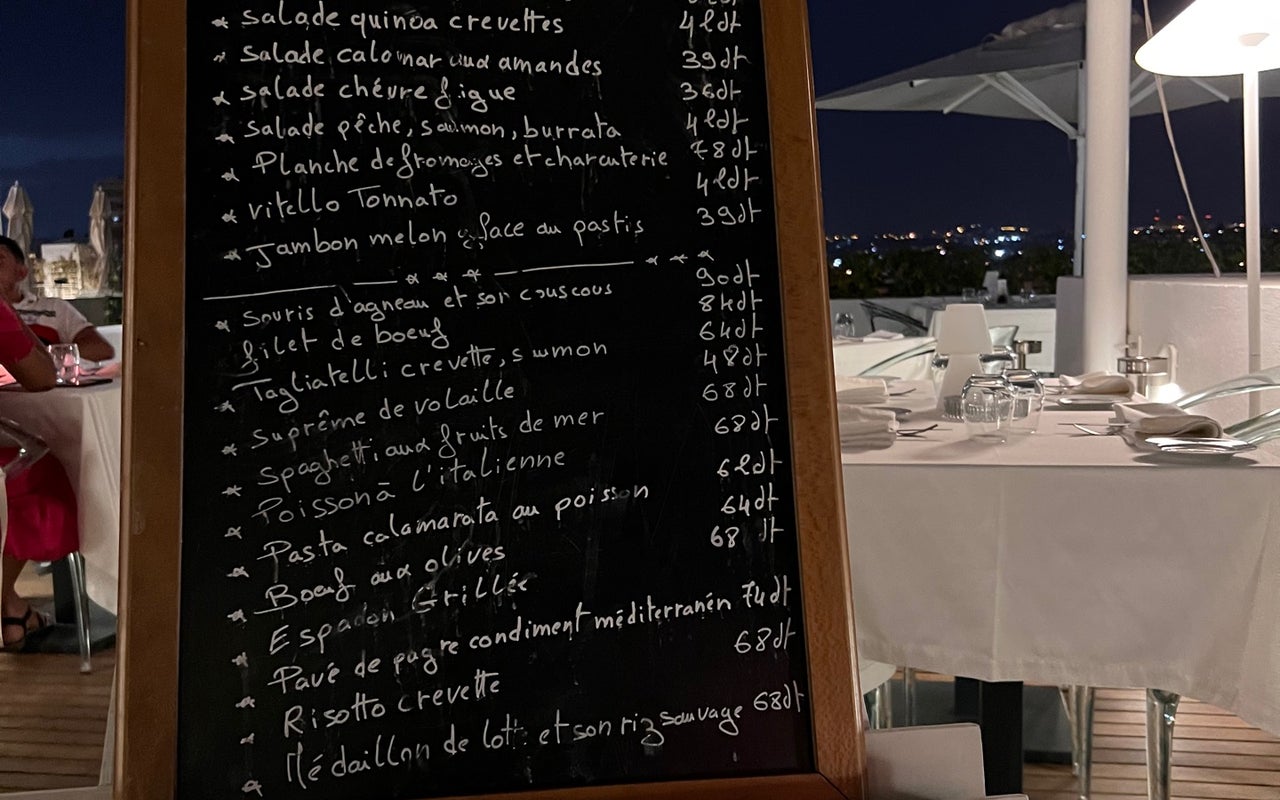 * salade quinoa crevettes 42dt
* salade calamar aux amandes 39dt
* salade chévre figue 36dt
* salade pêche, saumon, burrata 42dt
* Planche de fromages et charcuterie 78dt
* vitello Tonnato 42dt
* Jambon melon glace au pastis 39dt
* Souris d'agneau et son couscous 90dt
filet de boeuf 84dt
* Tagliatelli crevette, saumon 64dt
* Suprême de volaille 48dt
* Spaghetti aux fruits de mer 68dt
* Poisson à l'italienne 68dt
* Pasta calamarata au poisson 62dt
* Boeuf aux olives 64dt
* Espadon Grillée 68dt
* Pavé de pagre condiment méditerranén 74dt
* Risotto crevette 68dt
* Médaillon de lotte et son riz sauvage 68dt